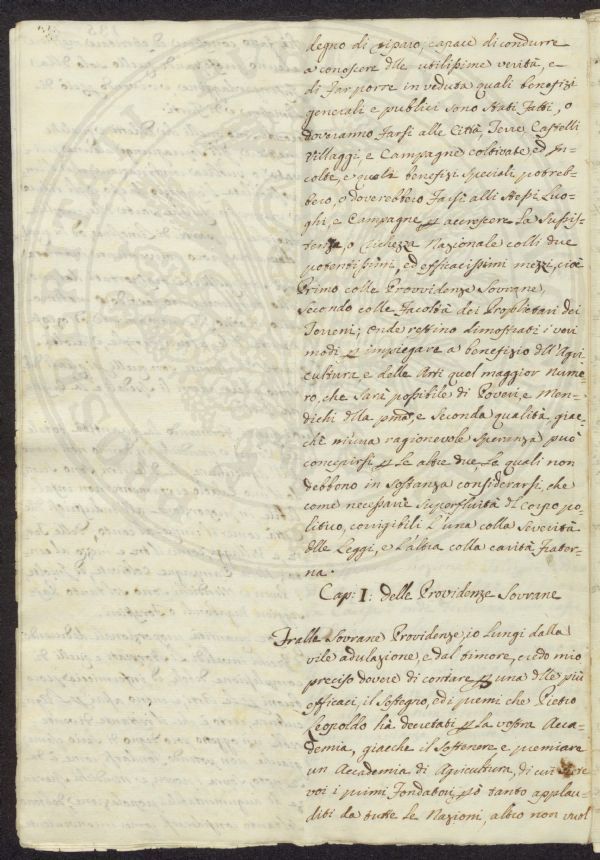 degno di riparo, capace di condurre
a conoscere dlle utilissime verità, e
di far porre in veduta quali benefizi
generali e publici sono stati fatti, o
dovranno farsi alle Città, Terre, Castelli
Villaggi, e Campagne coltivate, ed In-
colte, e quali benefizi speciali potreb-
bero, o doverebbero farsi alli stessi Luo-
ghi, e Campagne p accrescere la Sussis-
tenza, o richezza Nazionale colli due
potentissimi, ed efficacissimi mezzi, cioè
Primo colle Provvidenze Sovrane,
Secondo colle Facoltà dei Proprietari dei
Terreni; Onde restino dimostrati i veri
modi p impiegare a benefizio dll'Agri
cultura, e delle Arti quel maggior nume-
ro, che sarà possibile di Poveri, e Men-
dichi dlla pma, e Seconda qualità, giac-
chè niuna ragionevole Speranza può
concepirsi p le altre due, le quali non
debbono in Sostanza considerarsi, che
come necessarie superfluità del corpo po-
litico, corrigibili l'una colla Severità
dlle Leggi, e l'altra colla carità frater-
na.
Cap: I: delle Providenze Sovrane
Tralle Sovrane Providenze, io lungi dalla
vile adulazione, e dal timore, credo mio
preciso dovere di contare p una dlle più
efficaci, il Sostegno, ed i premi che Pietro
Leopoldo hà decretati p la vostra Acca-
demia, giacche il Sostenere, e premiare
un Accademia di Agricultura, di cui siete
voi i primi Fondatori, p ciò tanto applau-
diti da tutte le Nazioni, altro non vuol